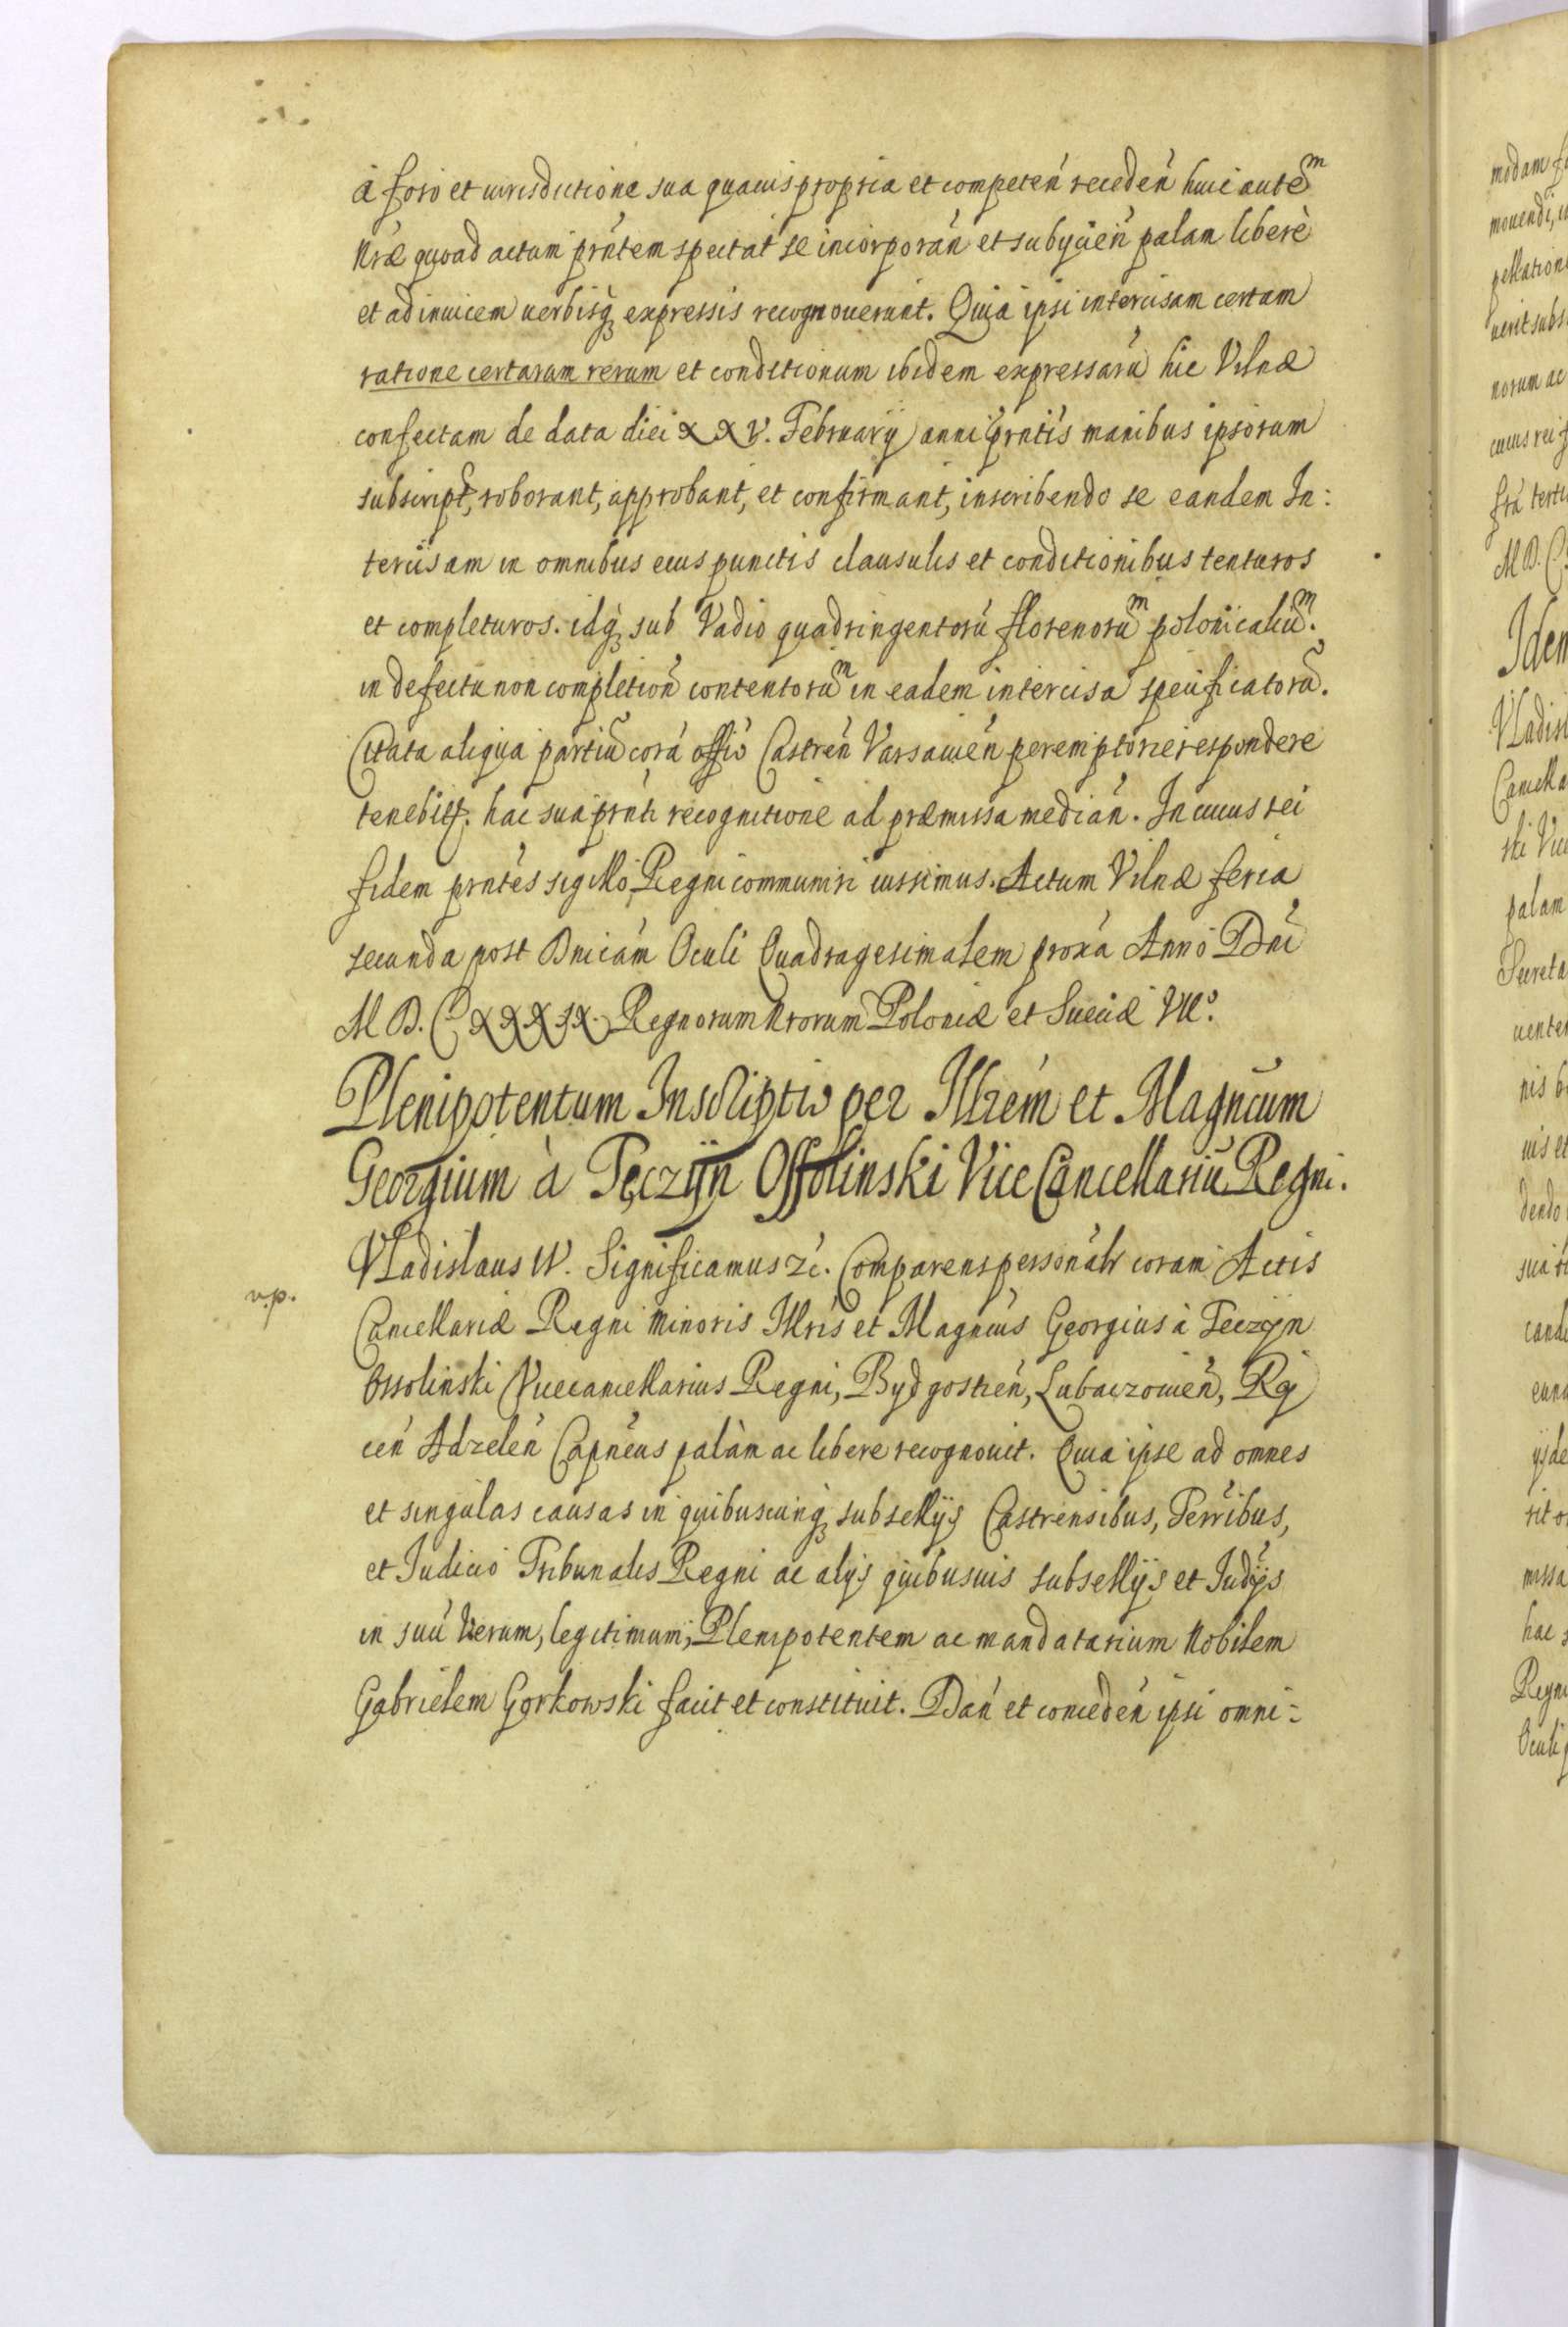 à foro et iurisdictione sua quauis propria et competeń recedeń huic autē m
Nrae quoad actum prńtem spectat se incorporań et subÿcień palam liberè
et ad inuicem uerbisq̨ expressis recognouerunt. Quia ipsi intercisam certam
ratione certarum rerum et conditionum ibidem expressarū hic Vilnae
confectam de data diei XXV. Februarÿ anni prńtis manibus ipsorum
subscript, roborant, approbant, et confirmant, inscribendo se eandem In:
tercisam in omnibus eius punctis clausulis et conditionibus tenturos
et completuros. idq̨ sub Vadio quadringentorū florenorū m polonicaliū m.
in defectu non completioń contentorū m in eadem intercisa specificatorū.
Citata aliqua partiū corá offió Castreń Varsauień peremptorie respondere
tenebitr. hac sua prńti recognitione ad praemissa mediań. In cuius rei
fidem prńtes sigillo Regni communiri iussimus. Actum Vilnae feria
secunda post Dnicám Oculi Quadragesimalem proxá Anno Dńi
M D. C XXXIX. Regnorum Nrorum Poloniae et Sueciae VII°.
Plenipotentum Inscriptio per Illrém et Magńcum
Georgium à Tęczÿn Ossolinski Vice Cancellariū Regni.
Vladislaus IV. Significamus &c. Comparens personalr coram Actis
v.p.
Cancellariae Regni Minoris Illris et Magńcus Georgius à Teczÿn
Ossolinski Vicecancellarius Regni, Bydgostień, Lubaczouień, Ry
ceń Adzeleń Capńeus palàm ac libere recognouit. Quia ipse ad omnes
et singulas causas in quibuscunq̨ subsellÿs Castrensibus, Terribus,
et Iudicio Tribunalis Regni ac alÿs quibusuis subsellÿs et Iudÿs
in suū Verum, legitimum, Plenipotentem ac mandatarium Nobilem
Gabrielem Gorkowski facit et constituit. Dań et concedeń ipsi omni-